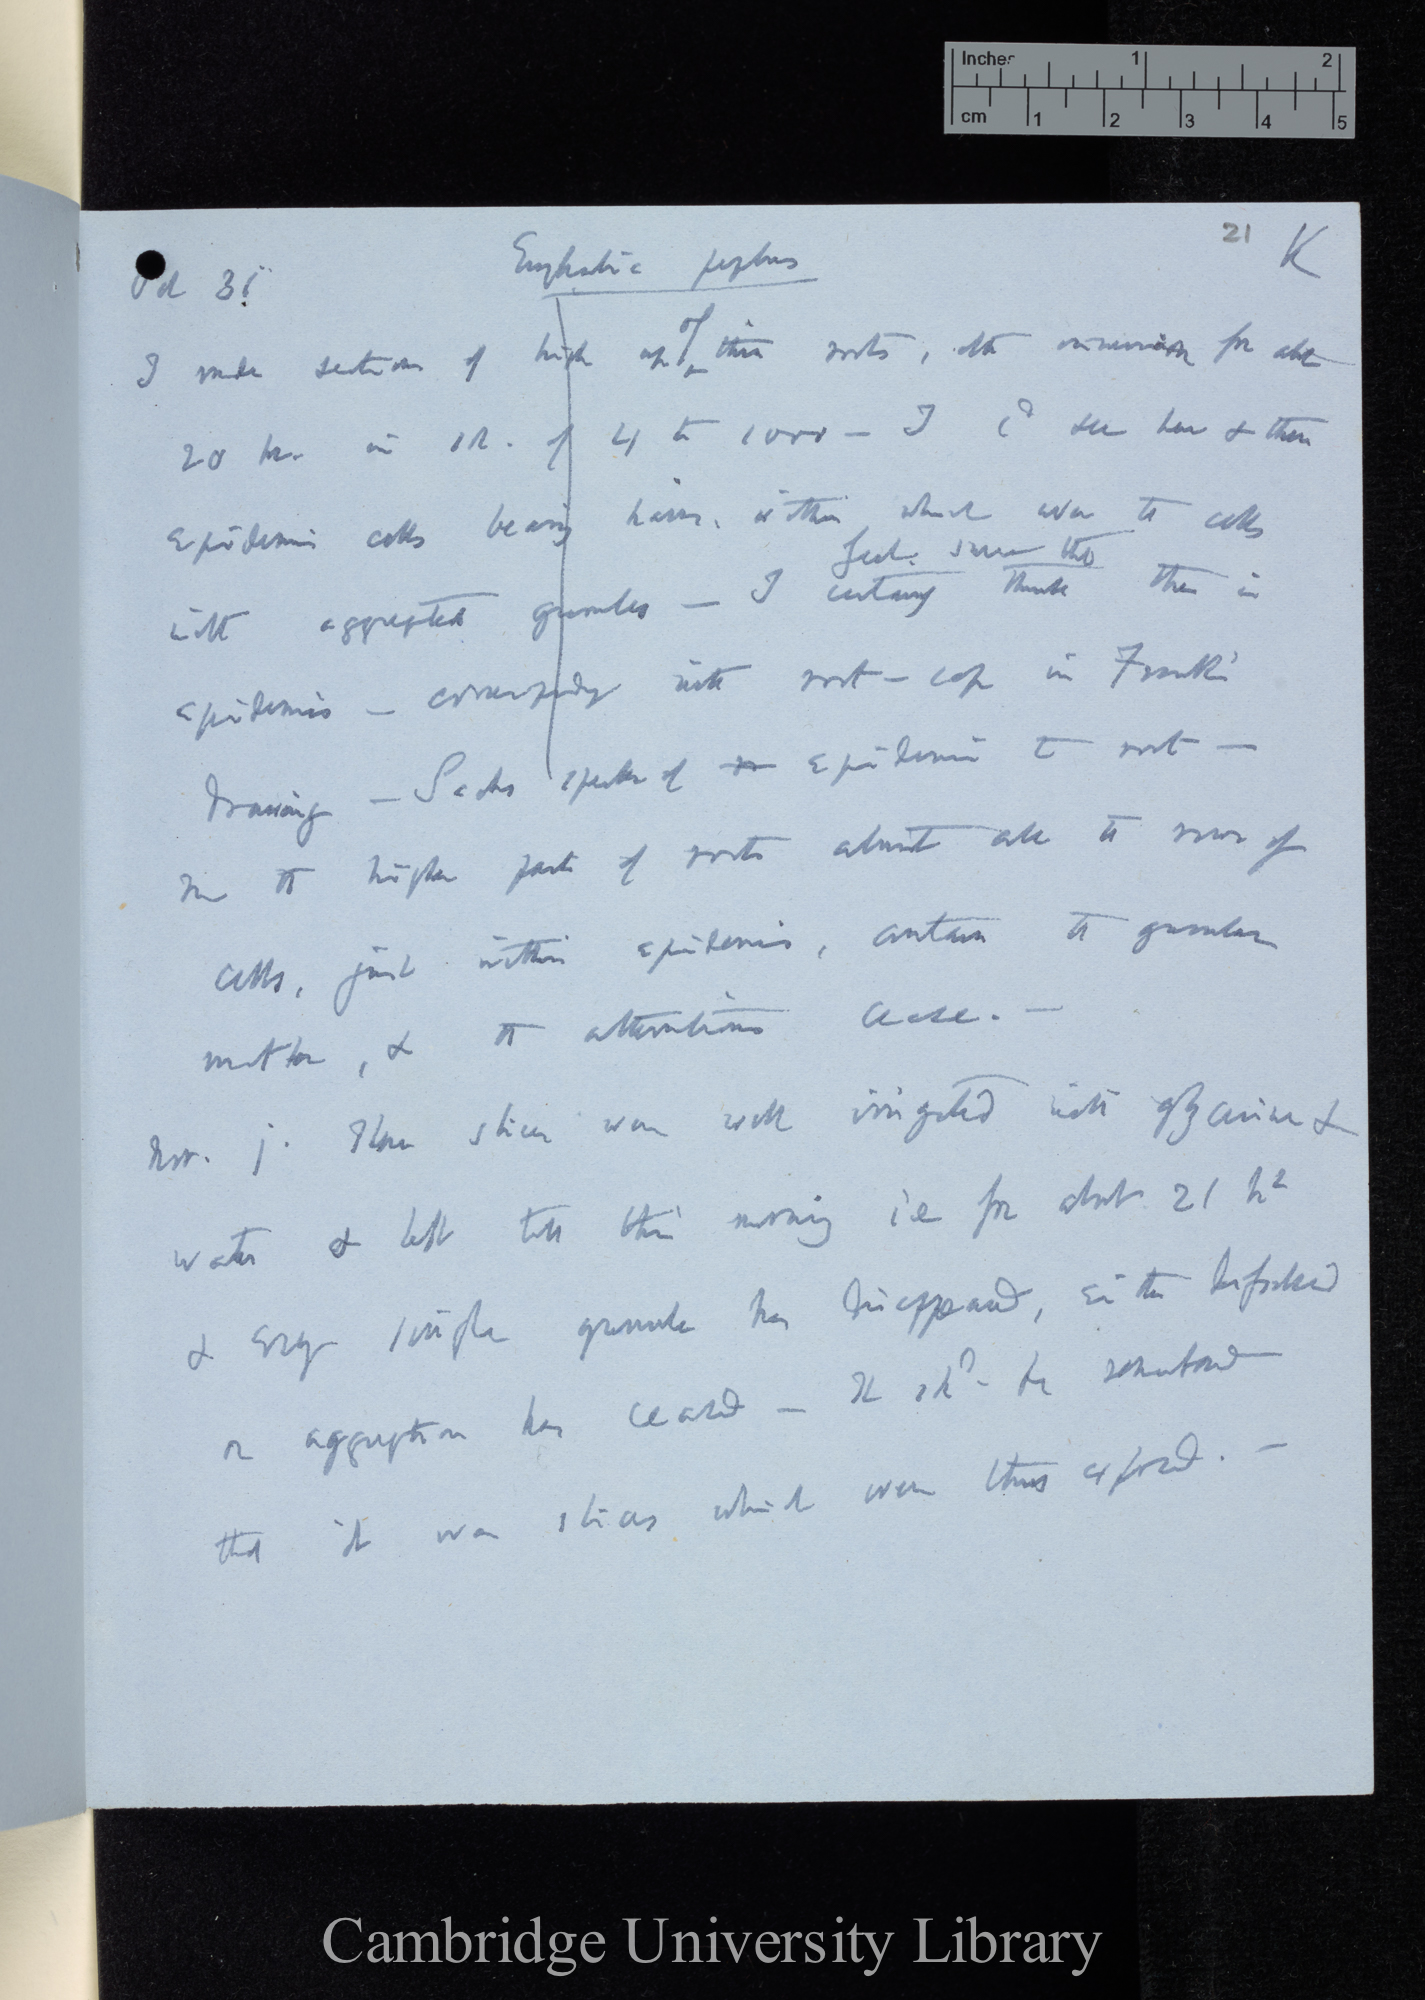 Inches 1 2
cm 1 2 3 4 5
21 K
Oct 31 Euphorbia peplus
I made sections of high up of thin roots, after immersion for abt
20 hrs. in sol. of 4 to 1000 — I cd see here & there
epidermis cells bearing hairs, within which were the cells
Sect. shew this
with aggregated granules — I certainly think there is
epidermis — corresponding with root-cap in Frank's
drawing — Sachs speaks of epidermis to root —
In the higher parts of roots almost all the rows of
cells, just within epidermis, contain the granular
matter, & the alternations cease. —
Nov. 1. These slices were well irrigated with glycerine &
water & left till this morning ie for about 21 hrs
& every single granule has disappeared, either dissolved
or aggregation has ceased — It shd. be remembered
that it was slices which were thus exposed. —
Cambridge University Library